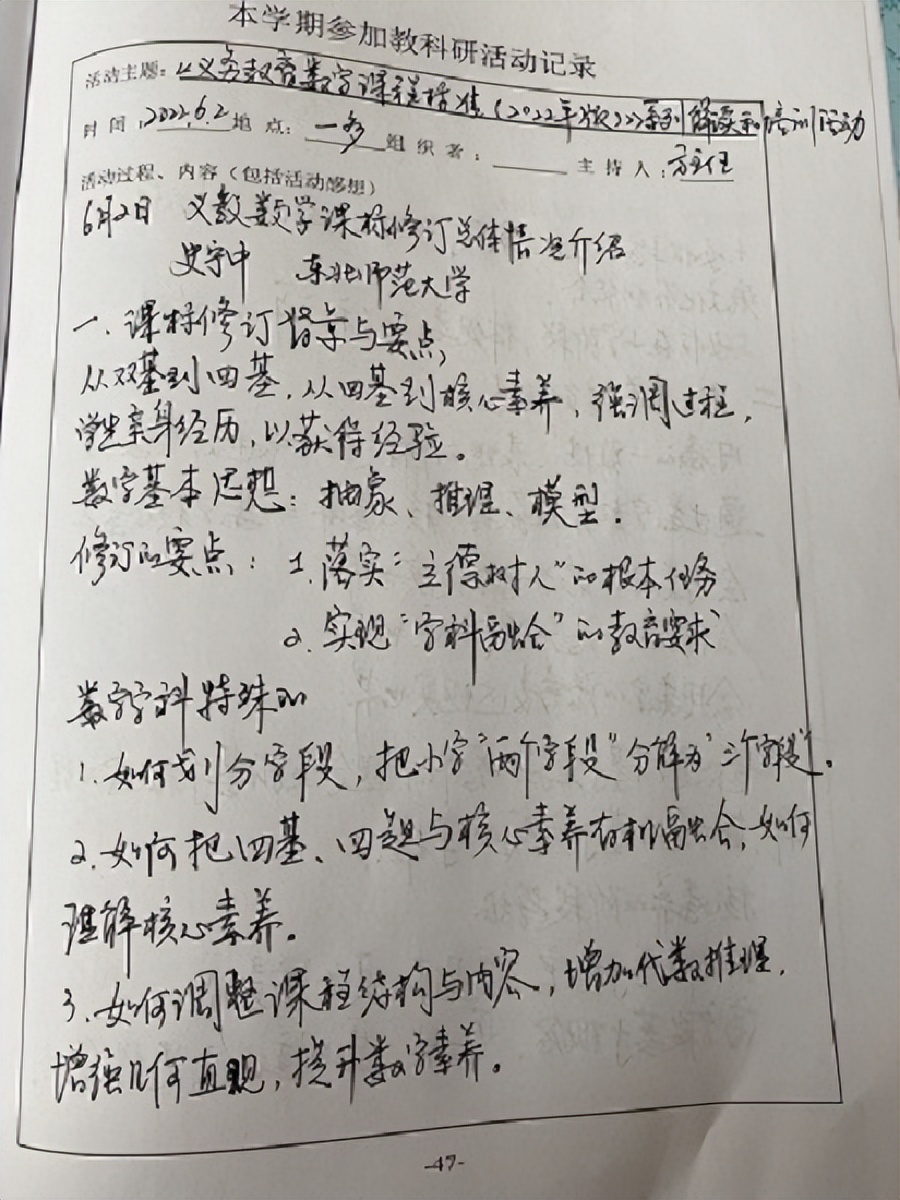 本学期参加教科研活动记录
活动主题：《义务教育数学课程标准（2022年版）》系列解读和培训活动
时间：2022.6.2 地点：一多 组织者： 主持人：方主任
活动过程、内容（包括活动感想）
6月2日 义教数学课标修订总体情况介绍
史宁中 东北师范大学
一.课标修订背景与要点，
从双基到四基，从四基到核心素养，强调过程，
学生亲身经历，以获得经验。
数学基本思想：抽象、推理、模型.
修订的要点：1.落实“立德树人”的根本任务
2.实现“学科融合”的教育要求
数学学科特殊的
1.如何划分学段，把小学“两个学段”分解为“三个学段”.
2.如何把四基、四能与核心素养有机融合，如何
理解核心素养。
3.如何调整课程结构与内容，增加代数推理，
增强几何直观，提升数学素养。
-47-